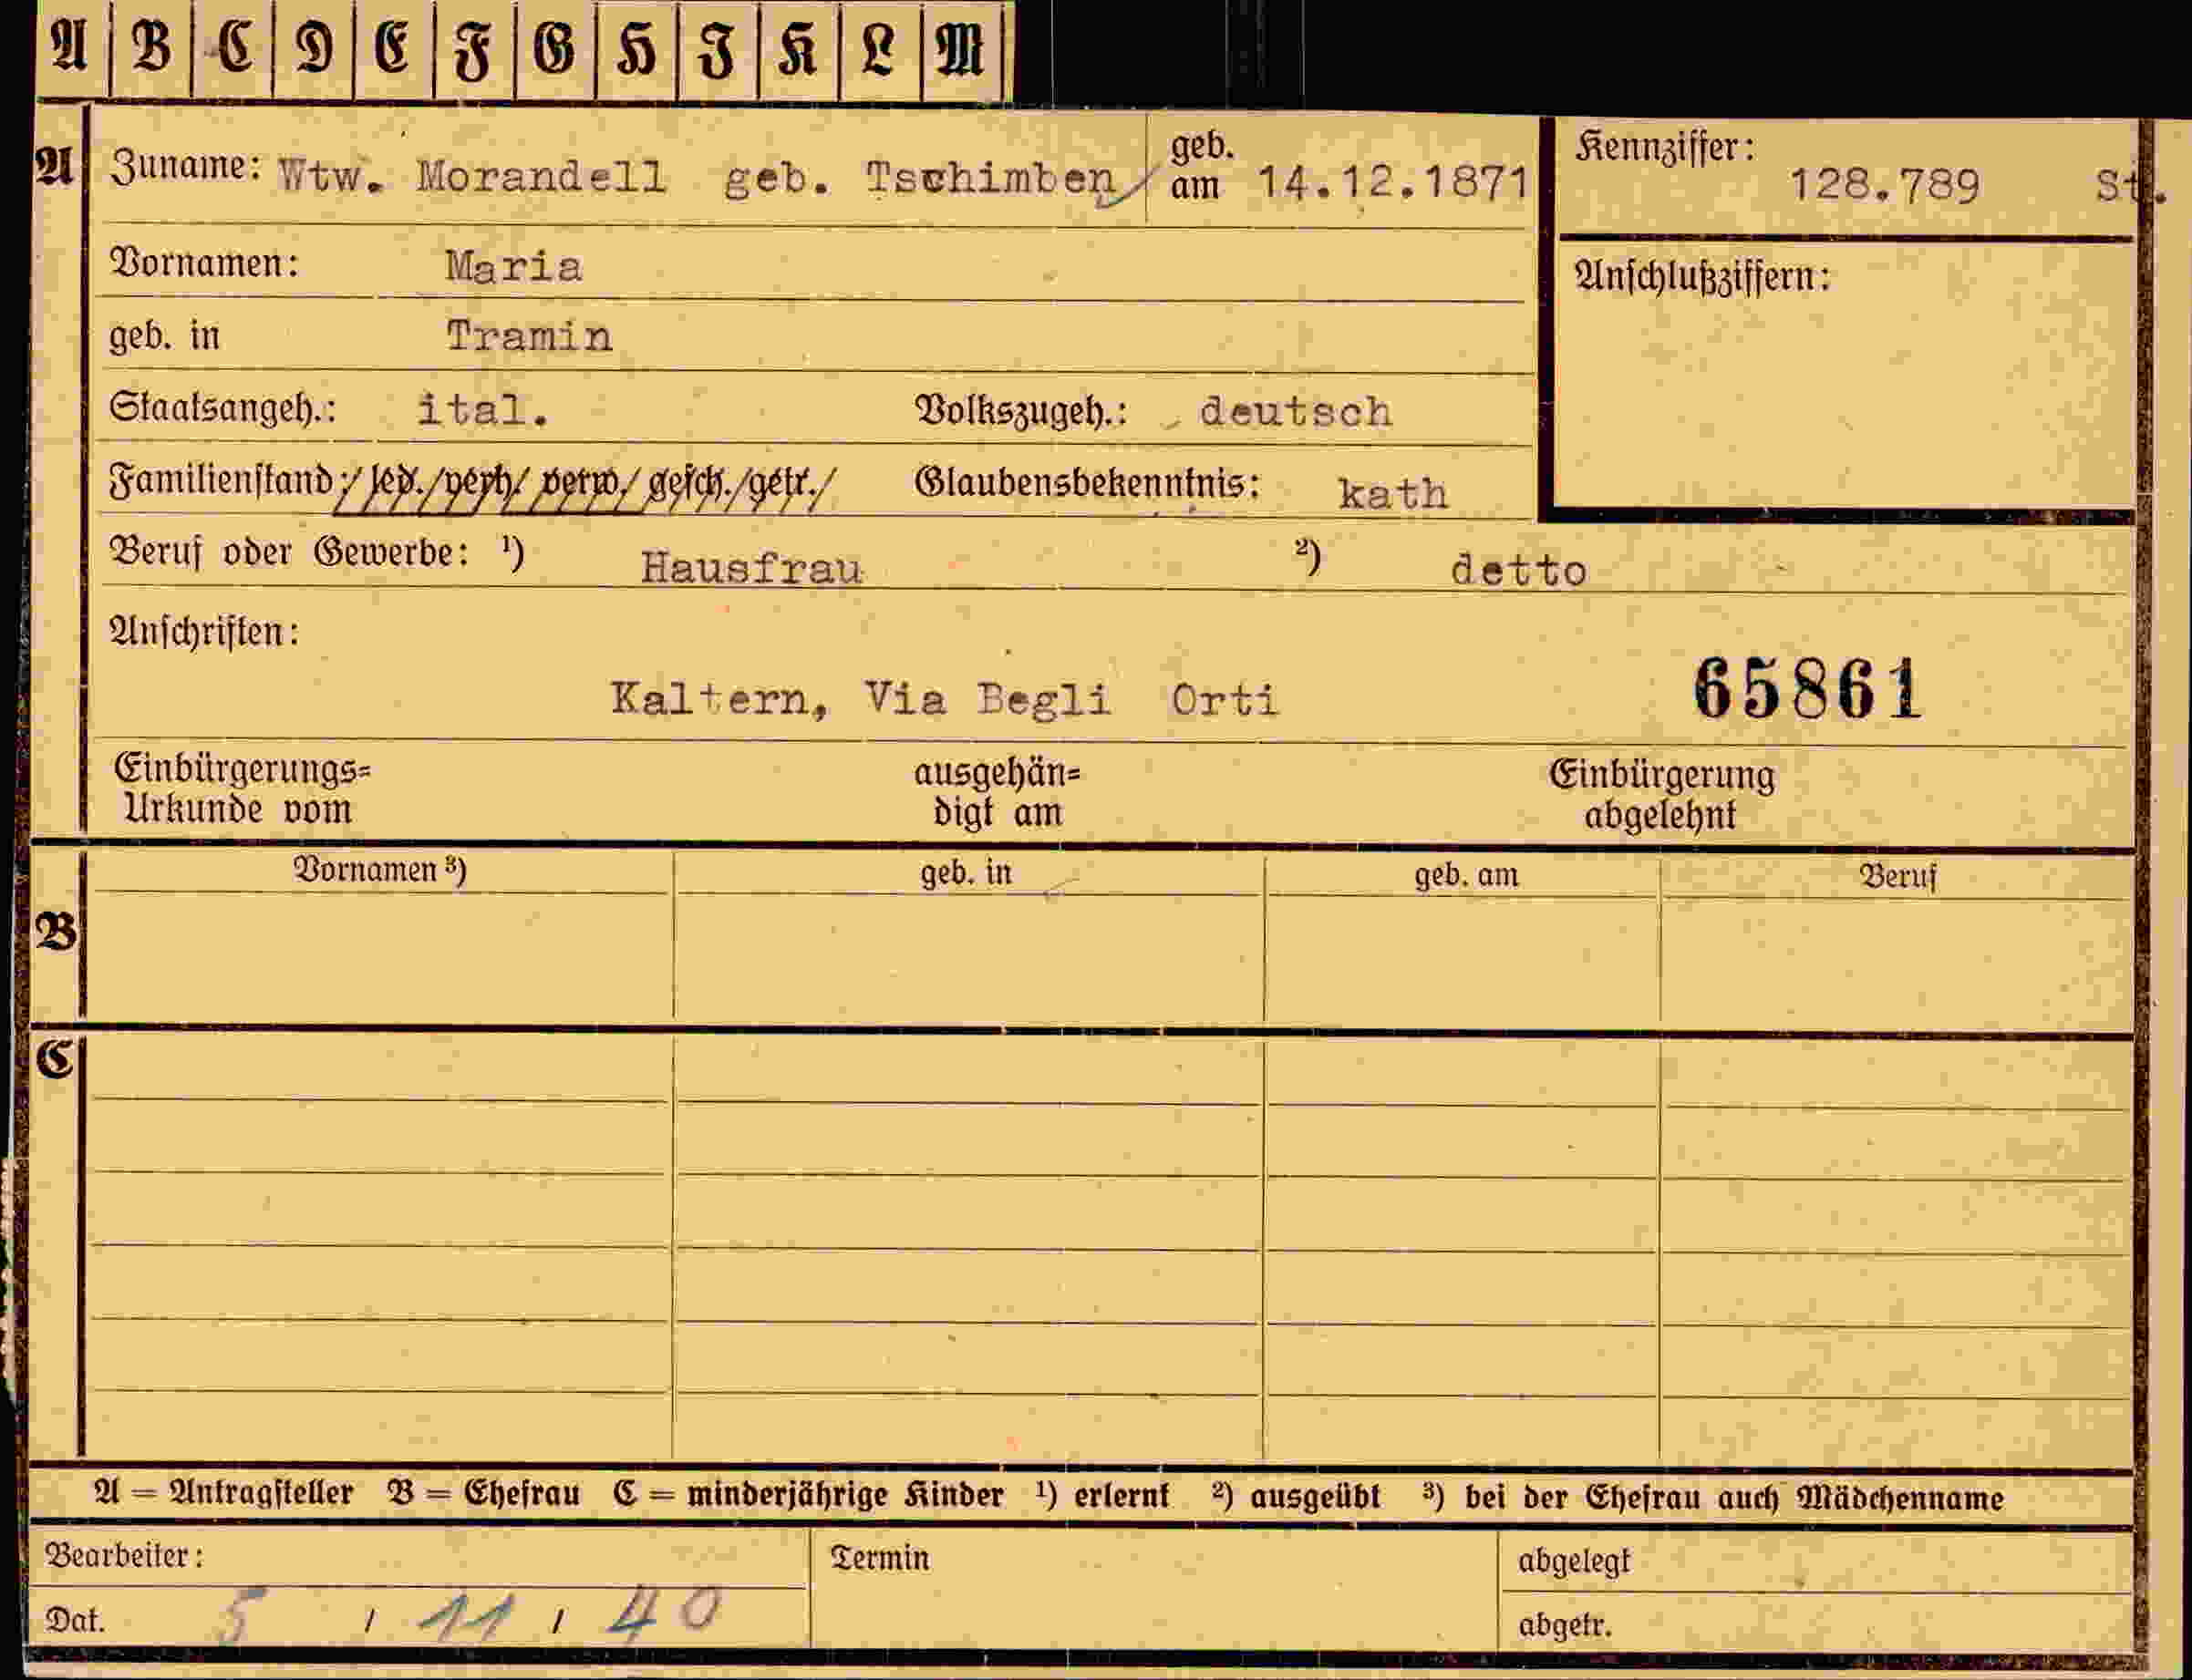 A B C D E F G H I K L M
A Zuname: Wtw. Morandell geb. Tschimben geb. am 14.12.1871 Kennziffer: 128.789 St.
Vornamen: Maria Anschlußziffern:
geb. in Tramin
Staatsangeh.: ital. Volkszugeh.: deutsch
Familienstand: led./verh/ verw./ gesch./getr./ Glaubensbekenntnis: kath
Beruf oder Gewerbe: ¹) Hausfrau ²) detto
Anschriften:
Kaltern, Via Begli Orti 65861
Einbürgerungs= ausgehän= Einbürgerung
Urkunde vom digt am abgelehnt
Vornamen ³) geb. in geb. am Beruf
B
C
A = Antragsteller B = Ehefrau C = minderjährige Kinder ¹) erlernt ²) ausgeübt ³) bei der Ehefrau auch Mädchenname
Bearbeiter: Termin abgelegt
Dat. 5 / 11 / 40 abgetr.